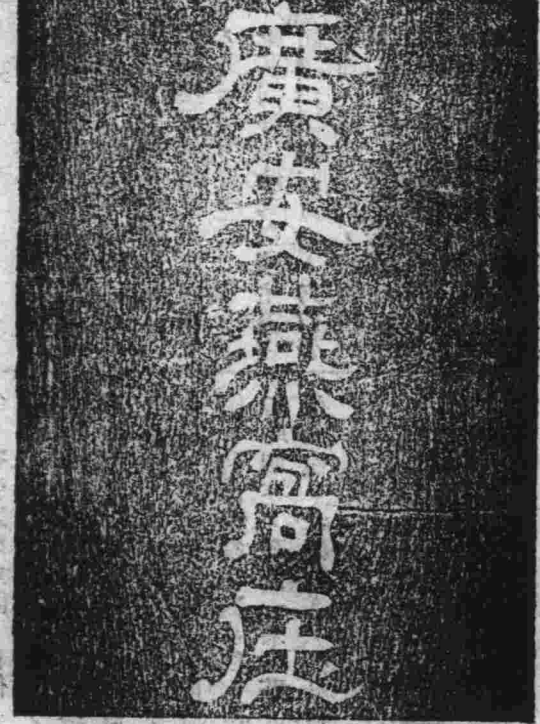 廣安燕窩庄